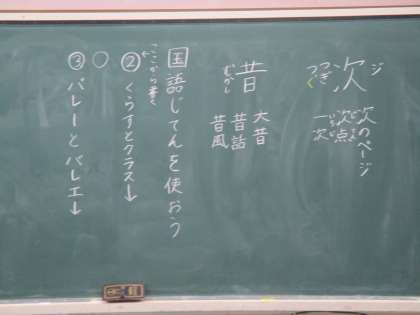 ジ
次
つぎ
つく
次のページ
次点
じてん
一次
いちじ
昔
むかし
大昔
昔話
昔風
国語じてんを使おう
ここから書く
②くらすとクラス↓
○
③バレーとバレエ↓